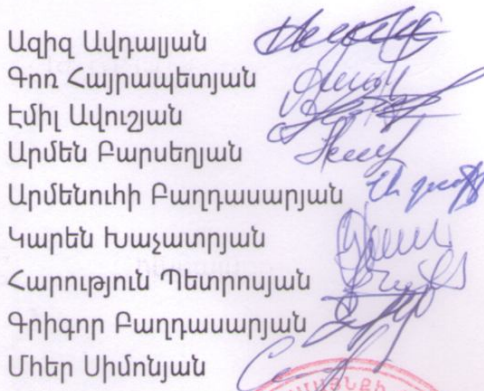 Ազիզ Ավդալյան
Գոռ Հայրապետյան
Էմիլ Ավուշյան
Արմեն Բարսեղյան
Արմենուհի Բաղդասարյան
Կարեն Խաչատրյան
Հարություն Պետրոսյան
Գրիգոր Բաղդասարյան
Մհեր Սիմոնյան